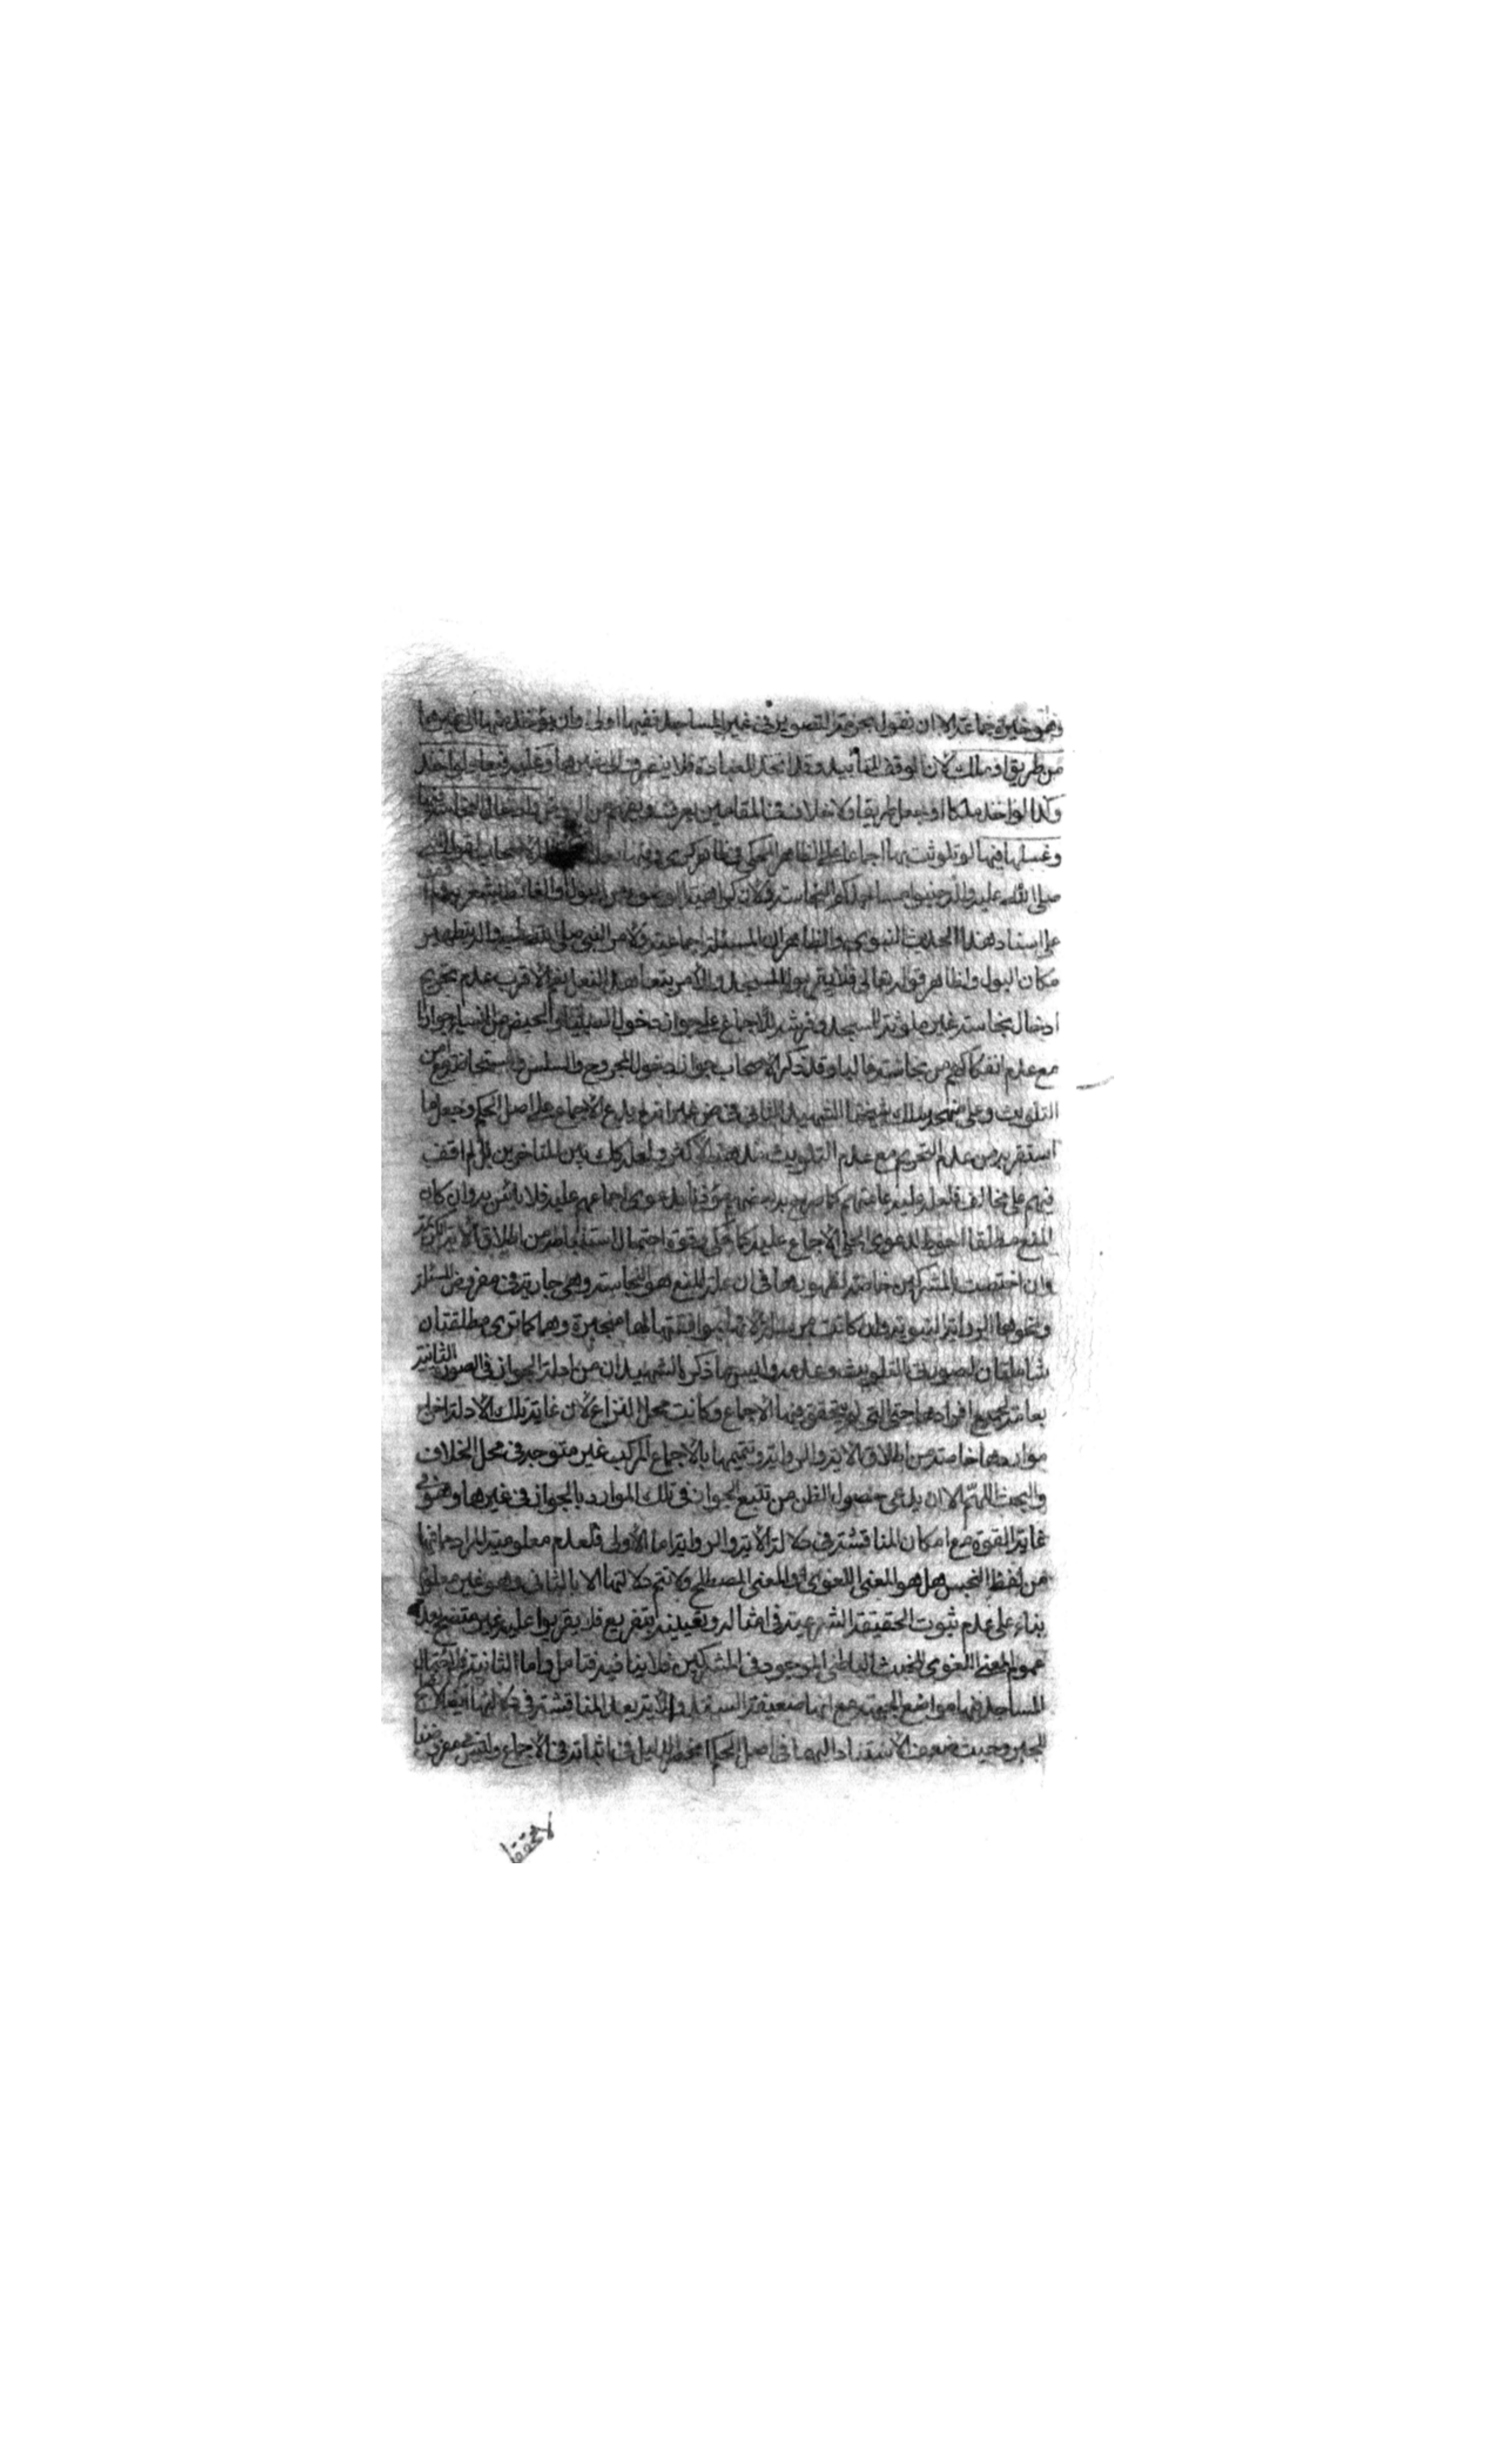 وهو خيرة جماعة الا ان نقول بحرمة التصوير في غير المساجد ففيها اولى وان يؤخذ منها الى غيرها
من طريق او ملك لان الوقف للتأبيد وقد اتخذ للعبادة فلا ينصرف الى غيرها وعليه فيعاد لو اخذ
وكذا لو اخذ ملكا او جعل طريقا ولا خلاف في المقامين يعرف وادخال النجاسة فيها
وغسلها فيها لو تلوثت بها اجماعا على الظاهر المحكي في ظاهر الاصحاب لقول النبي
صلى الله عليه واله جنبوا مساجدكم النجاسة ولان كراهية الوضوء من البول والغائط يشعر به
على اسناد هذا الحديث النبوي والظاهر ان المسئلة اجماعية ولامر النبي صلى الله عليه واله بتطهير
مكان البول ولظاهر قوله تعالى فلا يقربوا المسجد وللامر بتعاهد النعل نعم الاقرب عدم تحريم
ادخال نجاسة غير ملوثة للمسجد وفرشه للاجماع على جواز دخول الصبيان والحيض من النساء جوازا
مع عدم انفكاكهم من نجاسة غالبا وقد ذكر الاصحاب جواز دخول المجروح والسلس والمستحاضة مع امن
التلويث وعلى منهجه سلك شيخنا الشهيد الثاني في غير انه لم يدع الاجماع على اصل الحكم وجعل ما
استقربه من عدم التحريم مع عدم التلويث مذهب الاكثر ولعله كك بين المتاخرين بل لم اقف
فيهم على مخالف فلعل عليه عامتهم كما صرح به بعضهم مؤذنا بدعوى اجماعهم عليه فلا بأس به وان كان
المنع مطلقا احوط لدعوى الحلي الاجماع عليه كما حكي بقوة احتمال استنباطه من اطلاق الاية الكريمة
وان اختصت بالمشركين خاصة لظهورها في ان علة المنع هو النجاسة وهي جارية في مفروض المسئلة
ونحوها الرواية النبوية وان كانت مرسلة لانها بموافقتها لها منجبرة وهما كما ترى مطلقتان
شاملتان لصورتي التلويث وعدمه وليس ما ذكره الشهيدان من ادلة الجواز في الصورة الثانية
بعامة لجميع افرادها حتى التي لم يتحقق فيها الاجماع وكانت محل النزاع لان غاية تلك الادلة اخراج
مواردها خاصة من اطلاق الاية والرواية وتتميمها بالاجماع المركب غير متوجه في محل الخلاف
والبحث اللهم الا ان يدعى حصول الظن من تتبع الجواز في تلك الموارد بالجواز في غيرها وهو في
غاية القوة مع امكان المناقشة في دلالة الاية والرواية اما الاولى فلعدم معلومية المراد منها
من لفظ النجس هل هو المعنى اللغوي او المعنى المصطلح ولا تتم دلالتها الا بالثاني وهو غير معلوم
بناء على عدم ثبوت الحقيقة الشرعية في امثاله وتعيينه بتفريع فلا يقربوا عليه غير متضح بعد
عموم المعنى اللغوي للخبث الباطني الموجود في المشركين فلا ينافيه فتامل واما الثانية فلاحتمال
المساجد فيها مواضع الجبهة مع انها ضعيفة السند والاية بعد المناقشة في دلالتها
للجبر وحيث ضعف الاستناد اليهما في اصل الحكم انحصر الدليل في اثباته في الاجماع وليس
لا تحققا